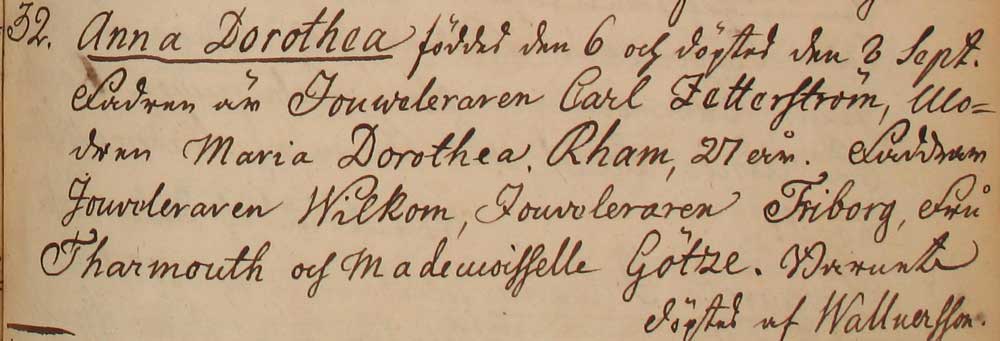 32. Anna Dorothea föddes den 6 och döptes den 8 Sept.
Fadren är Jouveleraren Carl Zetterström, Mo=
dren Maria Dorothea Rham, 27 år. Faddrar
Jouveleraren Wilkom, Jouveleraren Friborg, Fru
Tharmouth och Mademoisselle Götze. Barnet
döptes af Wallnersson.